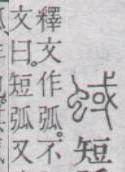 蜮短
釋文作弧。不
文曰。短弧又